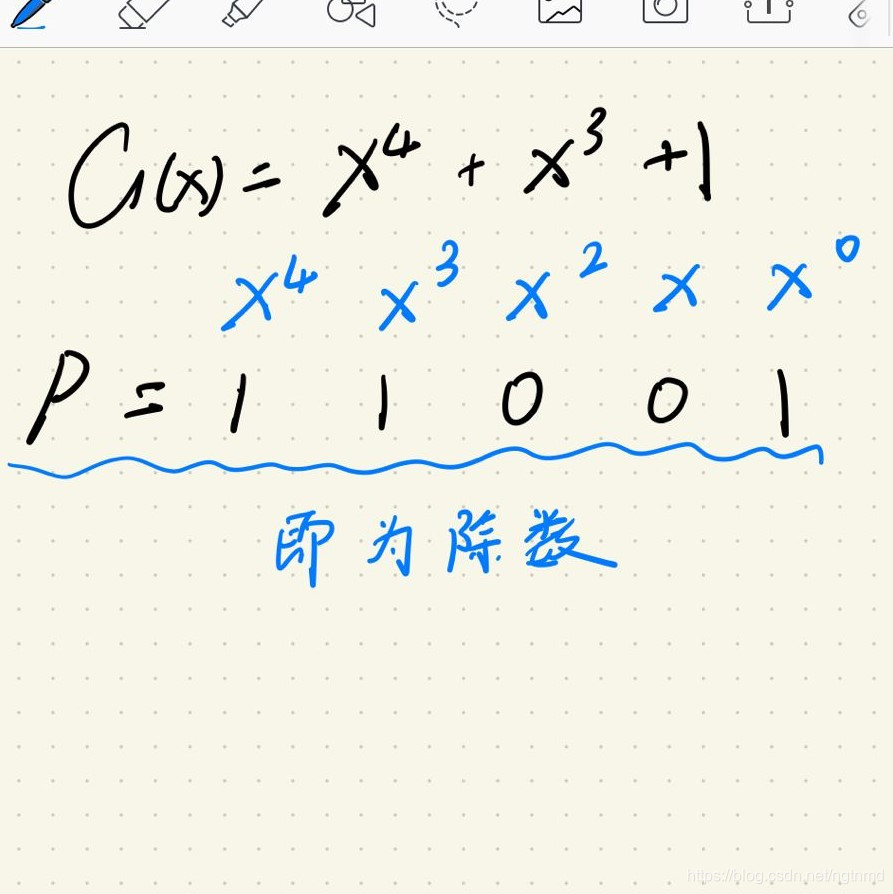 G(x) = x⁴ + x³ + 1
x⁴ x³ x² x x⁰
P = 1 1 0 0 1
即为除数
https://blog.csdn.net/ngtnmd